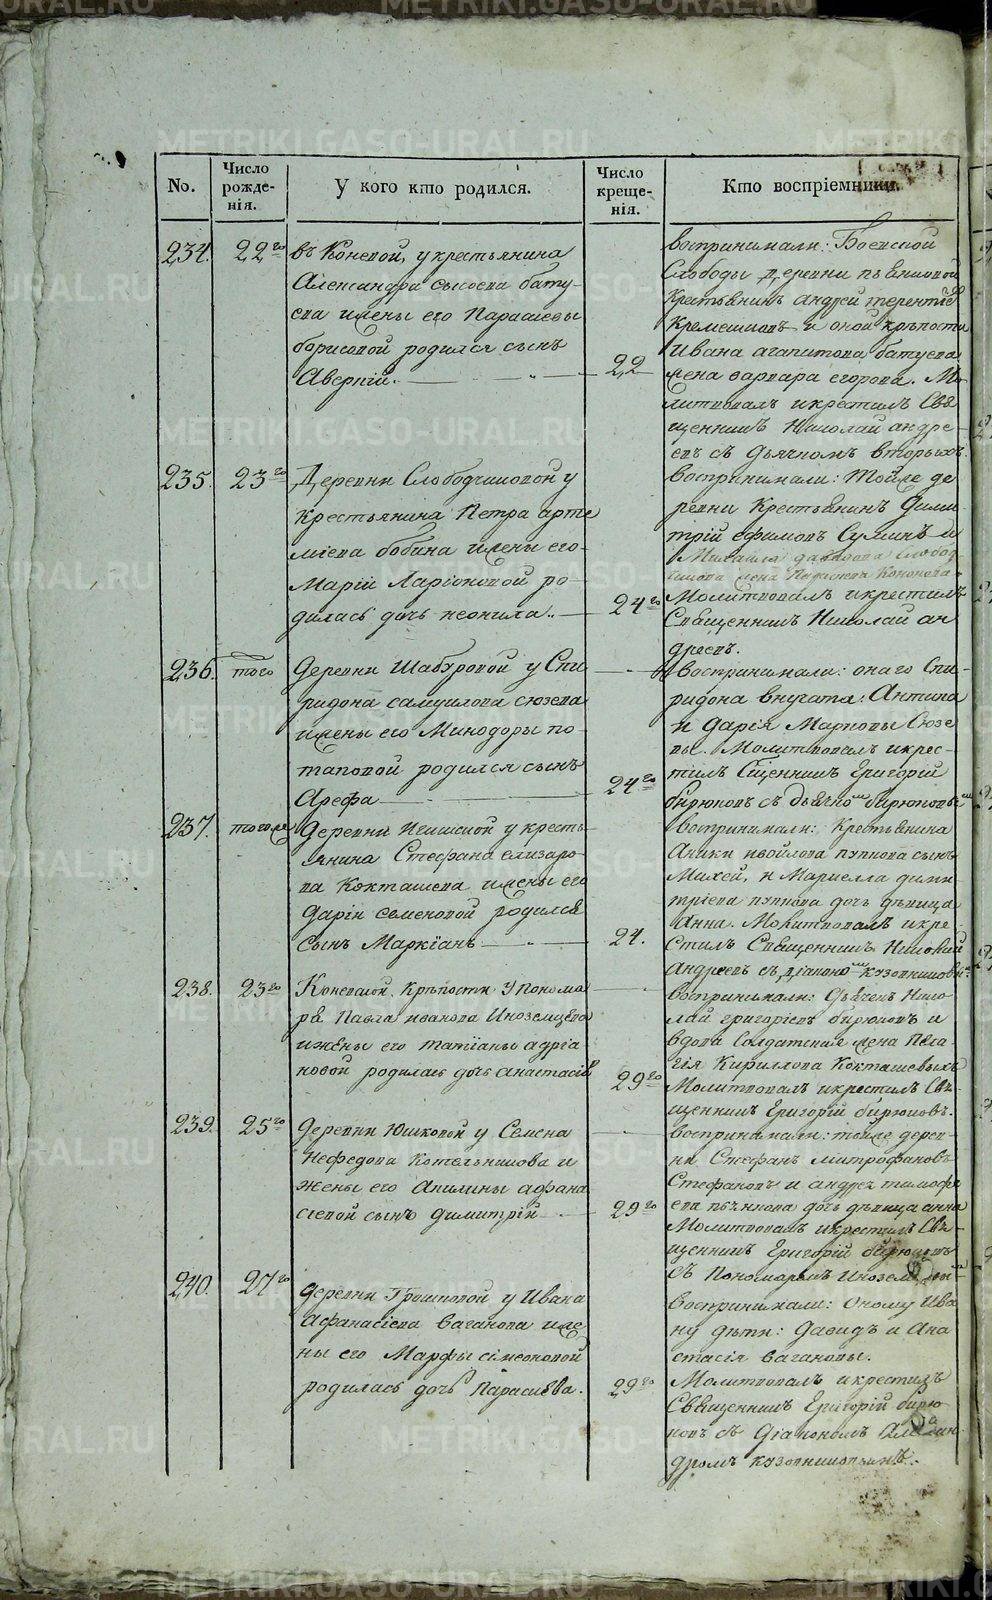 No.
Число рожде-нія.
У кого кто родился.
Число креще-нія.
Кто воспріемники.
234. 22го
въ Коневой, у крестьянина
Александра сысоева бату-
ева ижены его Параскевы
борисовой родился сынъ
Аверкій.
22
воспринимали: Боевской
Слободы деревни
крестьянинъ андрей терентіевъ
и оной крѣпости
Ивана агапитова батуева
жена варвара егорова. Мо-
литвовалъ икрестилъ Свя-
щенникъ Николай андре-
евъ съ дьячкомъ вторыхъ.
235. 23го
Деревни Слободчиковой у
Крестьянина Петра арте
міева бабина ижены его
Маріи Ларіоновой ро-
дилась дочь неонила.
24го
воспринимали: Тойже де
ревни Крестьянинъ Дими-
трій ефимовъ Сулинъ и
Михаила давыдова слобод-
чикова жена Кононова
Молитвовалъ икрестилъ
Священникъ Николай ан
дреевъ.
236. того
Деревни Шабуровой у Спи
ридона самуилова сюзева
ижены его Минодоры по-
таповой родился сынъ
Арефа
24го
воспринимали: онаго Спи-
ридона внучата: Антипа
и Дарія Марковы Сюзе
вы. Молитвовалъ икрес-
тилъ Сщенникъ Григорій
бирюковъ съ дьячкомъ бирюковымъ
237. тогоже
Деревни Игишской у кресть-
янина Стефана елизаро-
ва Кокташева ижены его
Даріи семеновой родился
сынъ Маркіанъ
24.
воспринимали: Крестьянина
Аники пупкова сынъ
Михей, и Маркелла дими-
тріева пупкова дочь дѣвица
Анна. Молитвовалъ икре-
стилъ Священникъ Николай
Андреевъ съ діакономъ казанниковымъ
238. 23го
Коневской Крѣпости у понома-
ря Павла иванова Иноземцева
ижены его татіаны адріа
новой родилась дочь анастасія
29го
воспринимали: Дьячекъ Нико
лай григоріевъ бирюковъ и
вдова Солдатская жена Пела-
гія Кириллова Кокташевыхъ
Молитвовалъ икрестилъ Свя-
щенникъ Григорій бирюковъ.
239. 25го
деревни Юшковой у Семена
нефедова Котельникова и
жены его Акилины афана
сіевой сынъ димитрій
29го
воспринимали: тойже дерев-
ни Стефанъ митрофановъ
Стефановъ и андрея тимофе
ева дочь дѣвица анна
Молитвовалъ икрестилъ Свя-
щенникъ Григорій бирюковъ
съ Пономаремъ
240. 27го
деревни Грошковой у Ивана
афанасіева ваганова иже
ны его Марфы симеоновой
родилась дочь Параскева.
29го
воспринимали: Оному Ива
ну дѣти: Давидъ и Ана
стасія вагановы.
Молитвовалъ икрестилъ
Священникъ Григорій бирю
ковъ съ діакономъ Алексан-
дромъ казанниковымъ.
METRIKI.GASO-URAL.RU